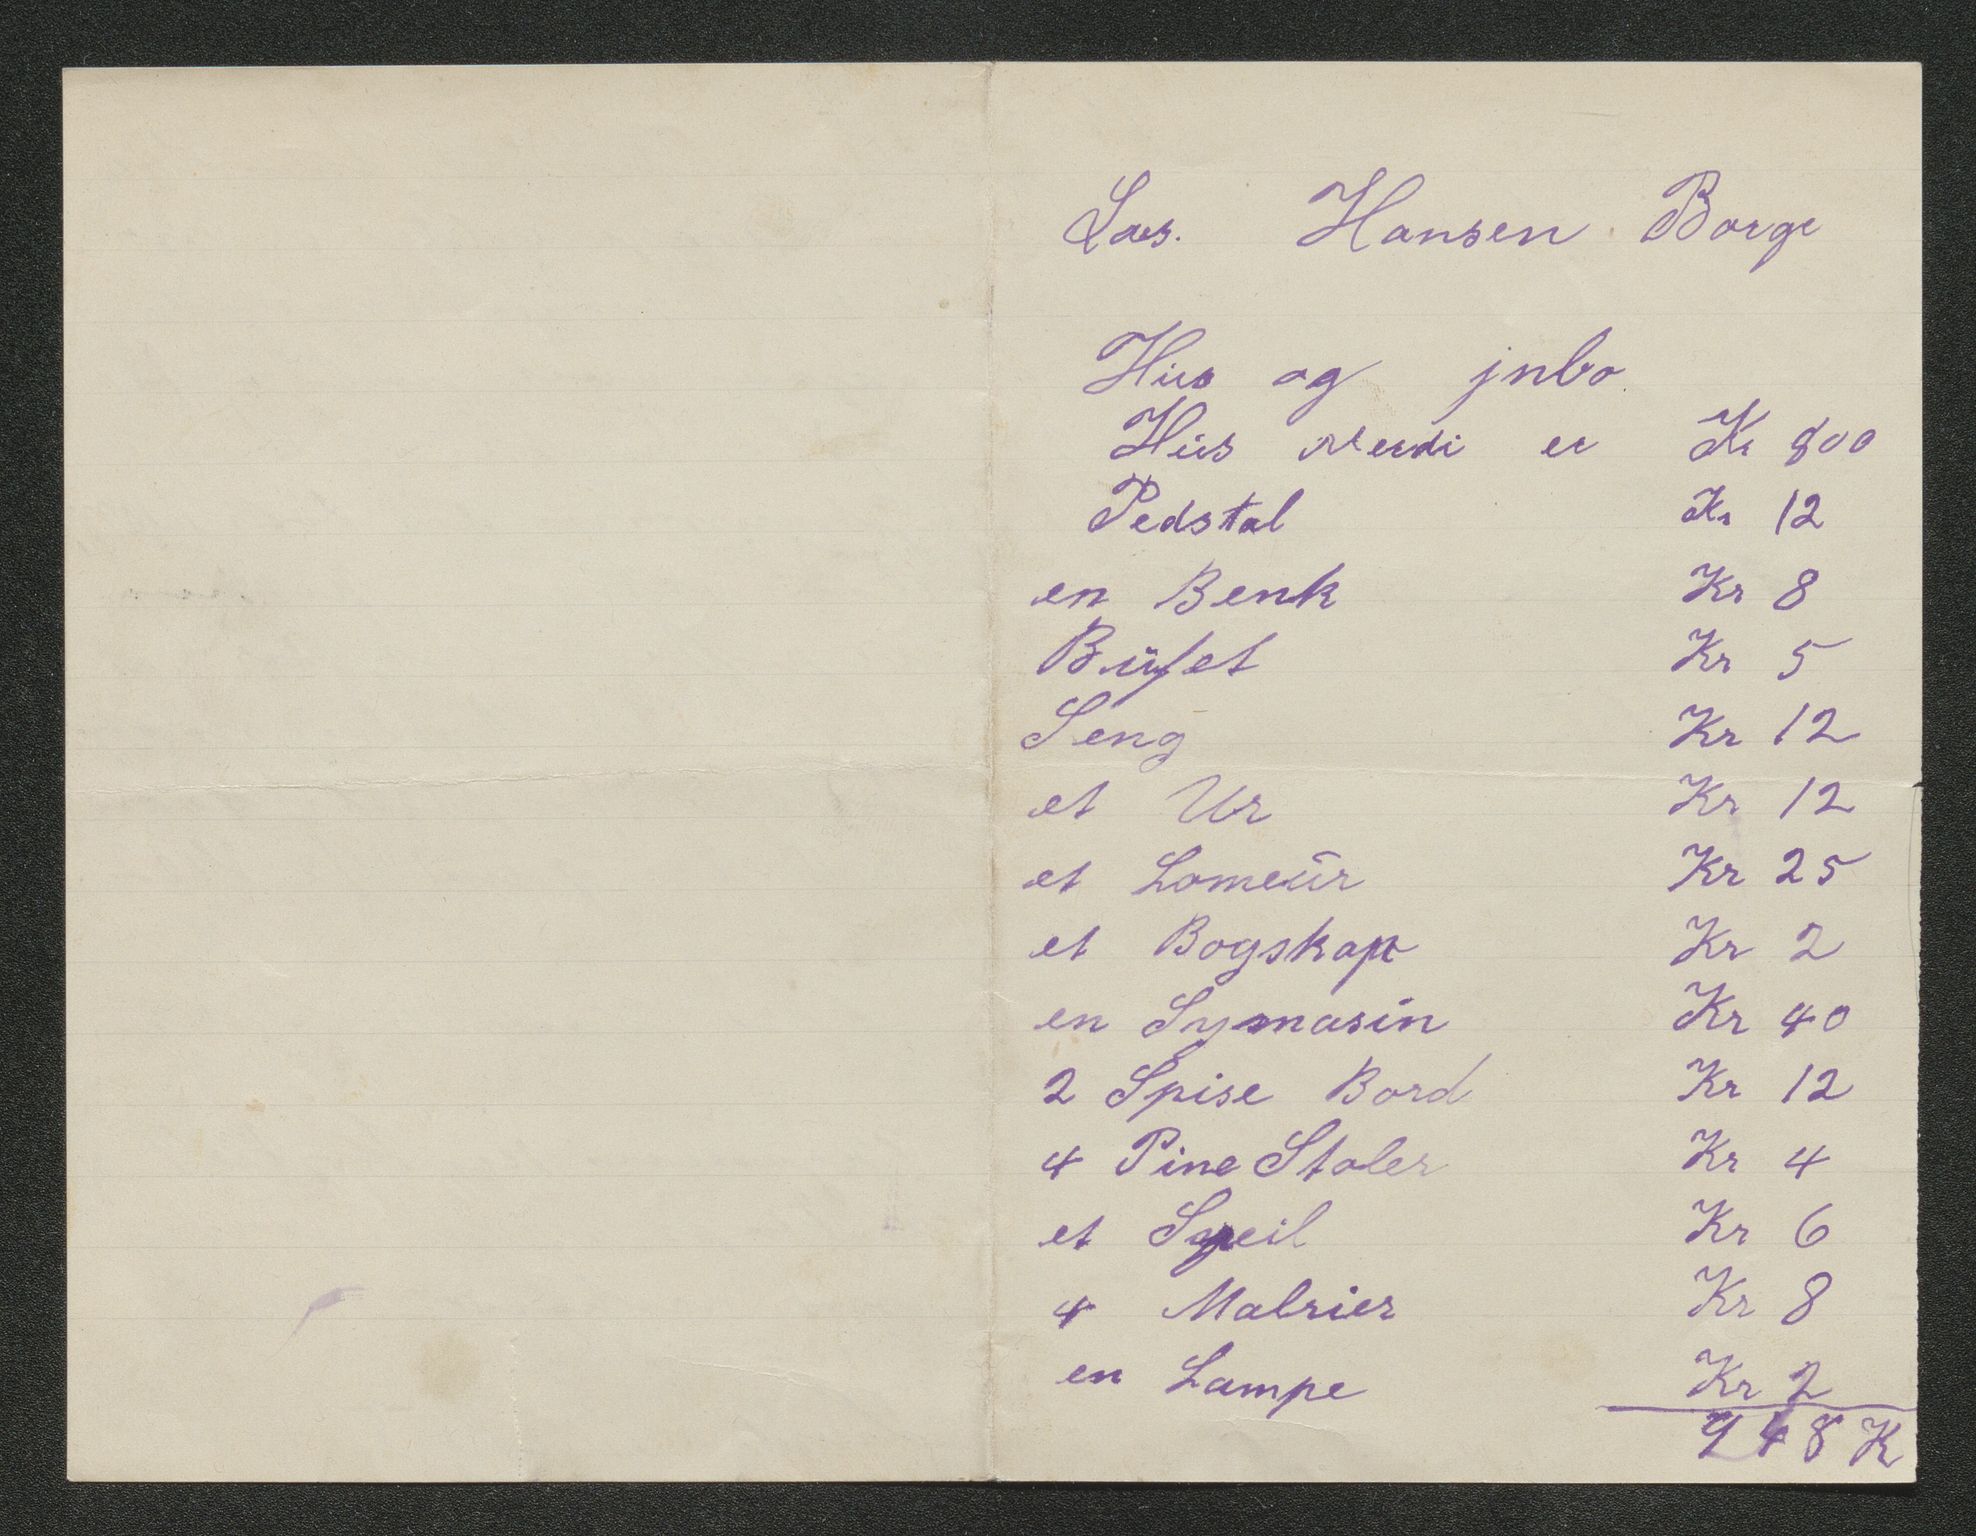 Lars. Hansen Borge
Hus og jnbo
Hus verdi er Kr 800
Pedstal Kr 12
en Benk Kr 8
Bufet Kr 5
Seng Kr 12
et Ur Kr 12
et Lomeur Kr 25
et Bogskap Kr 2
en Symasin Kr 40
2 Spise Bord Kr 12
4 Pine Stoler Kr 4
et Speil Kr 6
4 Malrier Kr 8
en Lampe Kr 2
948 K